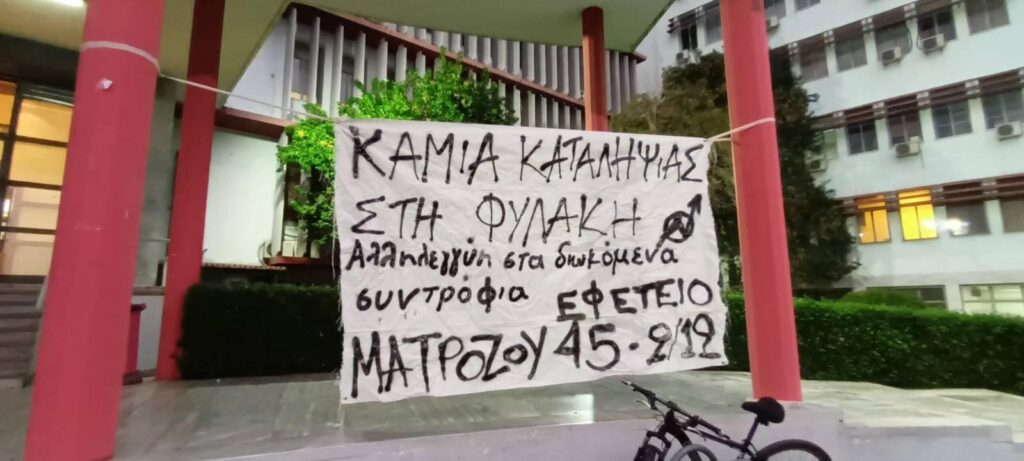 ΚΑΜΙΑ ΚΑΤΑΛΗΨΙΑΣ
ΣΤΗ ΦΥΛΑΚΗ
Αλληλεγγύη στα διωκόμενα
συντρόφια ΕΦΕΤΕΙΟ
ΜΑΤΡΟΖΟΥ 45 · 2/12